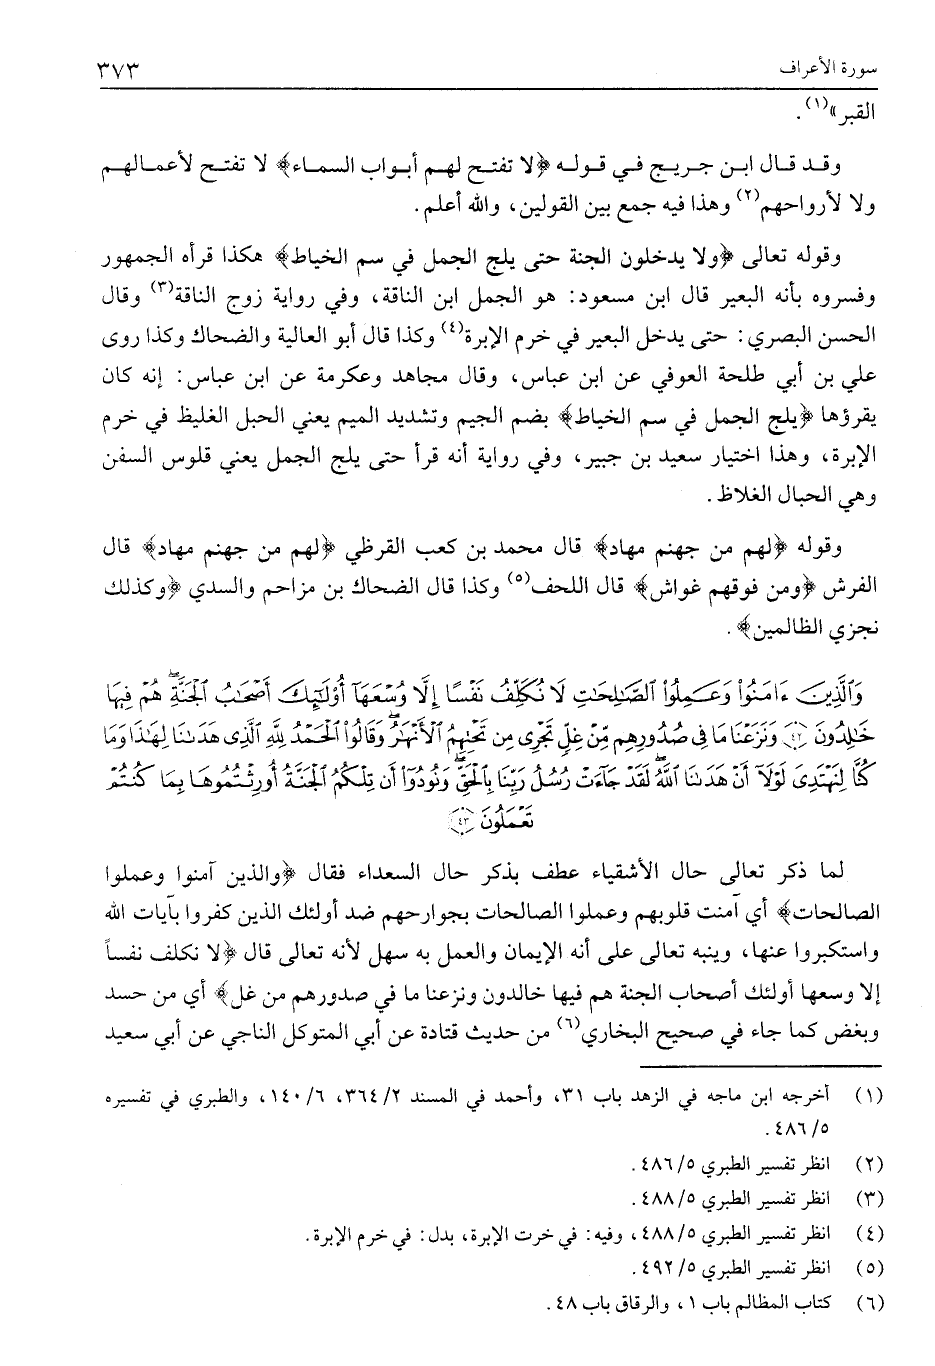 سورة الأعراف ٣٧٣
القبر»(١) .
وقد قال ابن جريج في قوله ﴿لا تفتح لهم أبواب السماء﴾ لا تفتح لأعمالهم
ولا لأرواحهم(٢) وهذا فيه جمع بين القولين، والله أعلم.
وقوله تعالى ﴿ولا يدخلون الجنة حتى يلج الجمل في سم الخياط﴾ هكذا قرأه الجمهور
وفسروه بأنه البعير قال ابن مسعود: هو الجمل ابن الناقة، وفي رواية زوج الناقة(٣) وقال
الحسن البصري: حتى يدخل البعير في خرم الإبرة(٤) وكذا قال أبو العالية والضحاك وكذا روى
علي بن أبي طلحة العوفي عن ابن عباس، وقال مجاهد وعكرمة عن ابن عباس: إنه كان
يقرؤها ﴿يلج الجمل في سم الخياط﴾ بضم الجيم وتشديد الميم يعني الحبل الغليظ في خرم
الإبرة، وهذا اختيار سعيد بن جبير، وفي رواية أنه قرأ حتى يلج الجمل يعني قلوس السفن
وهي الحبال الغلاظ.
وقوله ﴿لهم من جهنم مهاد﴾ قال محمد بن كعب القرظي ﴿لهم من جهنم مهاد﴾ قال
الفرش ﴿ومن فوقهم غواش﴾ قال اللحف(٥) وكذا قال الضحاك بن مزاحم والسدي ﴿وكذلك
نجزي الظالمين﴾ .
وَٱلَّذِينَ ءَامَنُوا۟ وَعَمِلُوا۟ ٱلصَّـٰلِحَـٰتِ لَا نُكَلِّفُ نَفْسًا إِلَّا وُسْعَهَآ أُو۟لَـٰٓئِكَ أَصْحَـٰبُ ٱلْجَنَّةِ ۖ هُمْ فِيهَا
خَـٰلِدُونَ ٤٢ وَنَزَعْنَا مَا فِى صُدُورِهِم مِّنْ غِلٍّ تَجْرِى مِن تَحْتِهِمُ ٱلْأَنْهَـٰرُ ۖ وَقَالُوا۟ ٱلْحَمْدُ لِلَّهِ ٱلَّذِى هَدَىٰنَا لِهَـٰذَا وَمَا
كُنَّا لِنَهْتَدِىَ لَوْلَآ أَنْ هَدَىٰنَا ٱللَّهُ ۖ لَقَدْ جَآءَتْ رُسُلُ رَبِّنَا بِٱلْحَقِّ ۖ وَنُودُوٓا۟ أَن تِلْكُمُ ٱلْجَنَّةُ أُورِثْتُمُوهَا بِمَا كُنتُمْ
تَعْمَلُونَ ٤٣
لما ذكر تعالى حال الأشقياء عطف بذكر حال السعداء فقال ﴿والذين آمنوا وعملوا
الصالحات﴾ أي آمنت قلوبهم وعملوا الصالحات بجوارحهم ضد أولئك الذين كفروا بآيات الله
واستكبروا عنها، وينبه تعالى على أنه الإيمان والعمل به سهل لأنه تعالى قال ﴿لا نكلف نفساً
إلا وسعها أولئك أصحاب الجنة هم فيها خالدون ونزعنا ما في صدورهم من غل﴾ أي من حسد
وبغض كما جاء في صحيح البخاري(٦) من حديث قتادة عن أبي المتوكل الناجي عن أبي سعيد
(١) أخرجه ابن ماجه في الزهد باب ٣١، وأحمد في المسند ٢/ ٣٦٤، ٦/ ١٤٠، والطبري في تفسيره
٥/ ٤٨٦ .
(٢) انظر تفسير الطبري ٥/ ٤٨٦ .
(٣) انظر تفسير الطبري ٥/ ٤٨٨ .
(٤) انظر تفسير الطبري ٥/ ٤٨٨، وفيه: في خرت الإبرة، بدل: في خرم الإبرة.
(٥) انظر تفسير الطبري ٥/ ٤٩٢ .
(٦) كتاب المظالم باب ١، والرقاق باب ٤٨ .